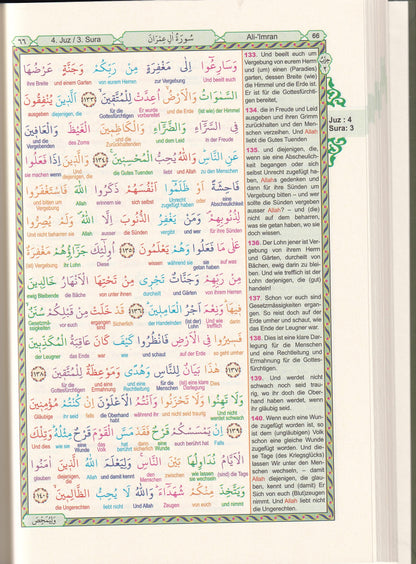 ٦٦
4. Juz / 3. Sura
سُورَةُ اٰلِ عِمْرَانَ
Ali-'Imran
66
وَسَارِعُوا إِلَى مَغْفِرَةٍ مِنْ رَبِّكُمْ وَجَنَّةٍ عَرْضُهَا
ihre Breite und einem Garten von eurem Herren zur Vergebung Und beeilt euch
السَّمٰوَاتُ وَالْأَرْضُ أُعِدَّتْ لِلْمُتَّقِينَ ﴿١٣٣﴾ الَّذِينَ يُنْفِقُونَ
ausgeben diejenigen, die für die Gottesfürchtigen Er wurde vorbereitet und die Erde (ist wie) der Himmel
فِي السَّرَّاءِ وَالضَّرَّاءِ وَالْكَاظِمِينَ الْغَيْظَ وَالْعَافِينَ
und die Vergebenden des Zorns und Leid in der Freude
عَنِ النَّاسِ وَاللّٰهُ يُحِبُّ الْمُحْسِنِينَ ﴿١٣٤﴾ وَالَّذِينَ إِذَا فَعَلُوا
die Gutes Tuenden liebt und Allah zu den Menschen
فَاحِشَةً أَوْ ظَلَمُوا أَنْفُسَهُمْ ذَكَرُوا اللّٰهَ فَاسْتَغْفَرُوا
und bitten um Vergebung Allah erinnern sie sich selbst Unrecht zugefügt haben oder
لِذُنُوبِهِمْ وَمَنْ يَغْفِرُ الذُّنُوبَ إِلَّا اللّٰهُ وَلَمْ يُصِرُّوا
Und nicht beharren sie Allah ausser die Sünden vergibt und wer für ihre Sünden
عَلٰى مَا فَعَلُوا وَهُمْ يَعْلَمُونَ ﴿١٣٥﴾ أُولٰئِكَ جَزَاؤُهُمْ مَغْفِرَةٌ
(ist) Vergebung ihr Lohn Diese wissen während sie was sie getan haben auf
مِنْ رَبِّهِمْ وَجَنَّاتٌ تَجْرِي مِنْ تَحْتِهَا الْأَنْهَارُ خَالِدِينَ
ewig Bleibende die Bäche von unter ihnen durcheilt und Gärten von ihrem Herren
فِيهَا وَنِعْمَ أَجْرُ الْعَامِلِينَ ﴿١٣٦﴾ قَدْ خَلَتْ مِنْ قَبْلِكُمْ سُنَنٌ
Gesetzmässigkeiten vor euch ergangen Sicherlich der Handelnden (ist) der Lohn Und wie trefflich darin
فَسِيرُوا فِي الْأَرْضِ فَانْظُرُوا كَيْفَ كَانَ عَاقِبَةُ الْمُكَذِّبِينَ
der Leugner das Ende war wie und schaut auf der Erde so geht umher
﴿١٣٧﴾ هٰذَا بَيَانٌ لِلنَّاسِ وَهُدًى وَمَوْعِظَةٌ لِلْمُتَّقِينَ ﴿١٣٨﴾
für die Gottesfürchtigen und eine Ermahnung und eine Rechtleitung für die Menschen (ist) eine klare Darlegung Dies
وَلَا تَهِنُوا وَلَا تَحْزَنُوا وَأَنْتُمُ الْأَعْلَوْنَ إِنْ كُنْتُمْ مُؤْمِنِينَ
Gläubige ihr seid falls die Oberhand habt während ihr und nicht seid traurig Und nicht werdet schwach
﴿١٣٩﴾ إِنْ يَمْسَسْكُمْ قَرْحٌ فَقَدْ مَسَّ الْقَوْمَ قَرْحٌ مِثْلُهُ وَتِلْكَ
الْأَيَّامُ نُدَاوِلُهَا بَيْنَ النَّاسِ وَلِيَعْلَمَ اللّٰهُ الَّذِينَ اٰمَنُوا
glauben diejenigen, die Allah und damit kennt den Menschen zwischen wir lassen sie wechseln (sind) die Tage
وَيَتَّخِذَ مِنْكُمْ شُهَدَاءَ وَاللّٰهُ لَا يُحِبُّ الظَّالِمِينَ ﴿١٤٠﴾
die Ungerechten liebt nicht und Allah Zeugen von euch und nimmt
وَلِيُمَحِّصَ
133. Und beeilt euch um
Vergebung von eurem Herrn
und (um) einen (Paradies)
garten, dessen Breite (wie)
die Himmel und die Erde ist.
Er ist für die Gottesfürchti-
gen bereitet,
134. die in Freude und Leid
ausgeben und ihren Grimm
zurückhalten und den Men-
schen verzeihen. Und Allah
liebt die Gutes Tuenden
135. und diejenigen, die,
wenn sie eine Abscheulich-
keit begangen oder sich
selbst Unrecht zugefügt ha-
ben, Allahs gedenken und
dann für ihre Sünden um
Vergebung bitten – und wer
sollte die Sünden vergeben
ausser Allah? – und (die)
nicht auf dem beharren,
was sie getan haben, wo sie
doch wissen.
136. Der Lohn jener ist Ver-
gebung von ihrem Herrn
und Gärten, durcheilt von
Bächen, ewig darin zu blei-
ben. Und wie trefflich ist der
Lohn derjenigen, die (gut)
handeln!
137. Schon vor euch sind
Gesetzmässigkeiten ergan-
gen. So reist doch auf der
Erde umher und schaut, wie
das Ende der Leugner war.
138. Dies ist eine klare Dar-
legung für die Menschen
und eine Rechtleitung und
Ermahnung für die Gottes-
fürchtigen.
139. Und werdet nicht
schwach noch seid trau-
rig, wo ihr doch die Ober-
hand haben werdet, wenn
ihr gläubig seid.
140. Wenn euch eine Wun-
de zugefügt worden ist, so
ist dem (ungläubigen) Volk
schon eine gleiche Wunde
zugefügt worden. Und die-
se Tage (des Kriegsglücks)
lassen Wir unter den Men-
schen wechseln, – damit
Allah diejenigen, die glau-
ben, kennt und (damit) Er
Sich von euch (Blut)zeugen
nimmt. Und Allah liebt nicht
die Ungerechten.
Juz : 4
Sura: 3